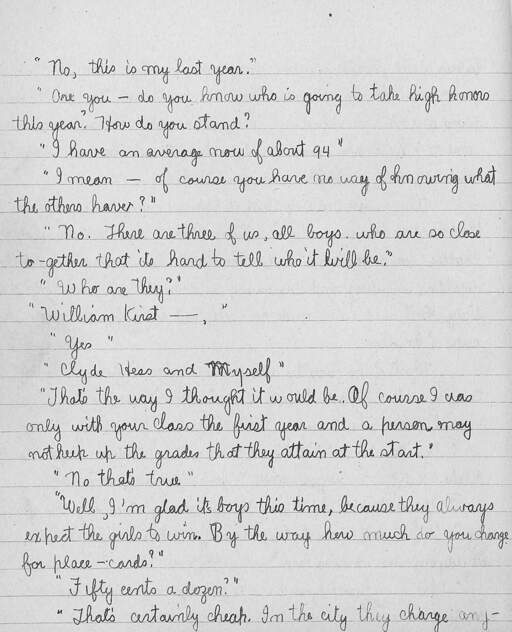 "No, this is my last year."
"Are you — do you know who is going to take high honors
this year? How do you stand?
"I have an average now of about 94"
"I mean — of course you have no way of knowing what
the others haver?"
"No. There are three of us, all boys. who are so close
to-gether that its hard to tell who it will be."
"Who are they?"
"William Kirst —, "
"Yes "
"Clyde Hess and Myself"
"That's the way I thought it would be. Of course I was
only with your class the first year and a person may
not keep up the grades that they attain at the start."
"No that's true"
"Well, I'm glad it's boys this time, because they always
expect the girls to win. By the way how much do you change
for place-cards?"
"Fifty cents a dozen?"
"That's certainly cheap. In the city they charge any-